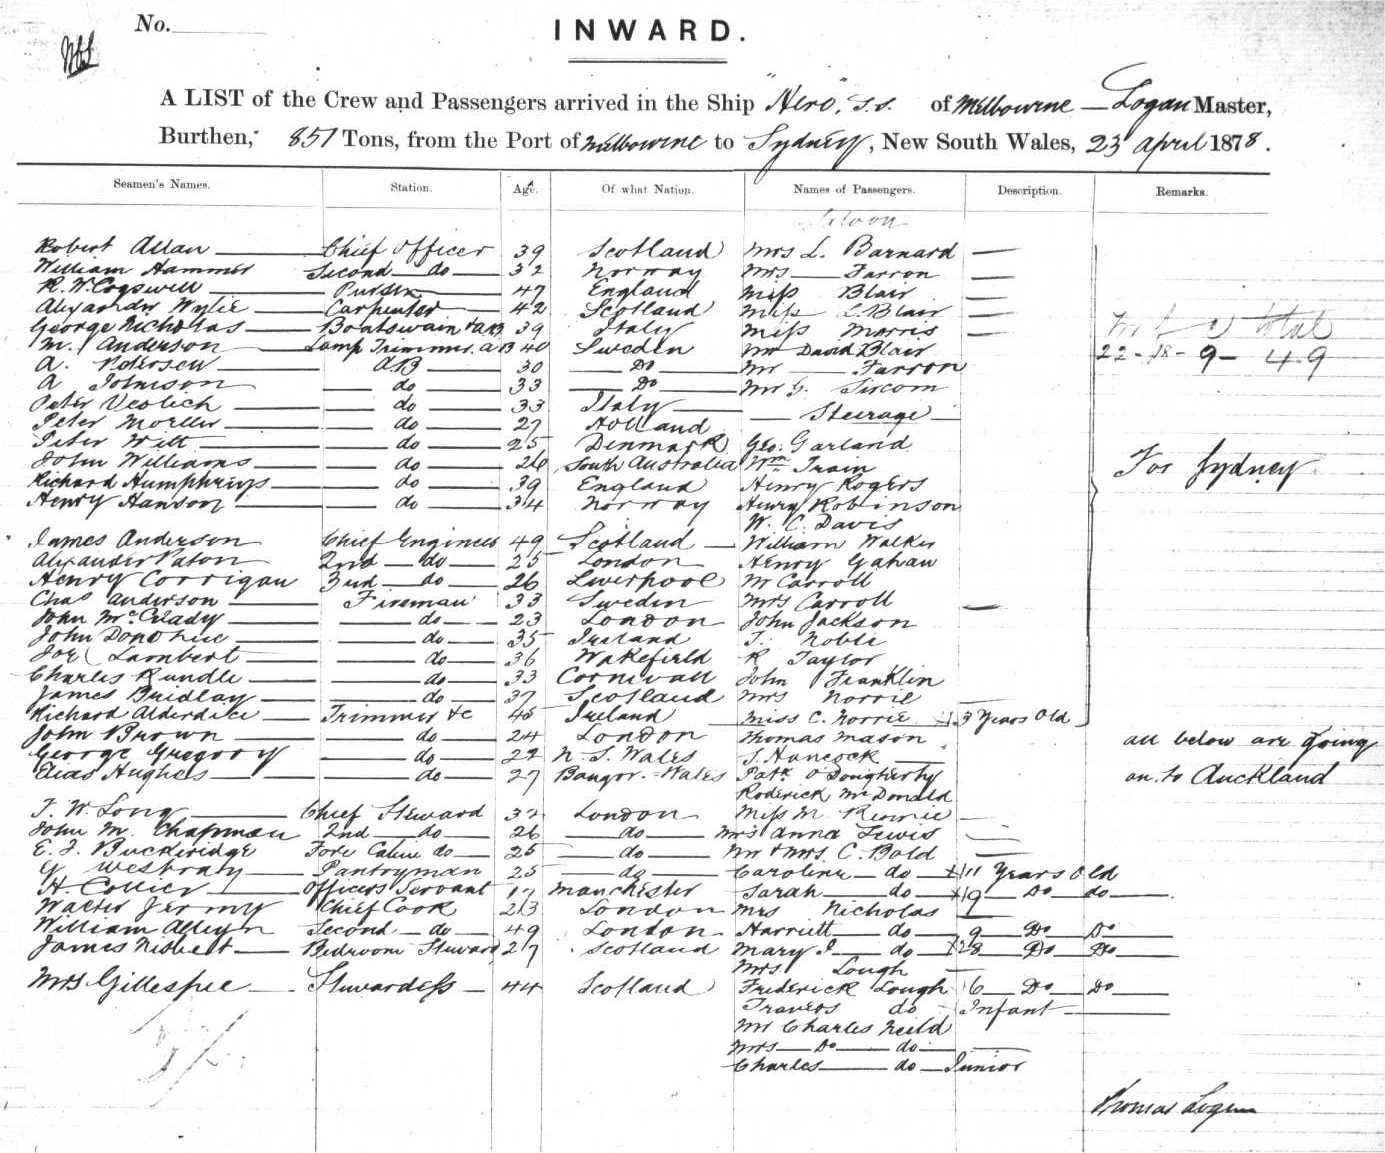 No.
INWARD.
A LIST of the Crew and Passengers arrived in the Ship "Hero", s.s. of Melbourne — Logan Master,
Burthen, 851 Tons, from the Port of Melbourne to Sydney, New South Wales, 23 April 1878.
Seamen's Names. Station. Age. Of what Nation. Names of Passengers. Description. Remarks.
Saloon
Robert Allan Chief Officer 39 Scotland Mrs L. Barnard —
William Hammer Second do 32 Norway Mrs Farron —
R. W. Cogswell Purser 47 England Miss Blair —
Alexander Wylie Carpenter 42 Scotland Miss L. Blair —
George Nicholas Boatswain & AB 39 Italy Miss Morris — total
M. Anderson Lamp Trimmer. AB 40 Sweden Mr David Blair 22 - 18 - 9 - 49
A. Petersen AB 30 Do Mr Farron
A Johnson do 33 Do Mr G. Sircom
Peter Veolich do 33 Italy Steerage
Peter Moeller do 27 Holland
Peter Witt do 25 Denmark Geo. Garland
John Williams do 26 South Australia Wm. Train For Sydney
Richard Humphreys do 39 England Henry Rogers
Henry Hanson do 34 Norway Henry Robinson
W. C. Davis
James Anderson Chief Engineer 49 Scotland William Walker
Alexander Paton 2nd do 25 London Henry Gahan
Henry Corrigan 3rd do 26 Liverpool Mr Carroll
Chas Anderson Fireman 33 Sweden Mrs Carroll —
John McCready do 23 London John Jackson
John Donohue do 35 Ireland T. Noble
Joe Lambert do 36 Wakefield R Taylor
Charles Rundle do 33 Cornwall John Franklin
James Bridlay do 37 Scotland Mrs Norrie
Richard Alderdice Trimmer &c 45 Ireland Miss C. Norrie 3 Years Old
John Brown do 24 London Thomas Mason all below are going
George Gregory do 22 N. S. Wales J. Hancock on to Auckland
Elias Hughes do 27 Bangor - Wales Patk O'Dougherty
Roderick McDonald
T. W. Long Chief Steward 32 London Miss M. —
John M. Chapman 2nd do 26 do Mrs Anna Lewis —
E. J. Buckeridge Fore Cabin do 25 do Mr & Mrs. C. Bold —
G Westbray Pantryman 25 do Caroline do 11 Years Old
H. Collier Officers Servant 17 Manchester Sarah do 9 Do do
Walter Jermy Chief Cook 23 London Mrs Nicholas —
William Alleyn Second do 49 London Harriett do 9 Do Do
James Nisbet Bedroom Steward 27 Scotland Mary J do 8 Do Do
Mrs. Lough —
Mrs Gillespie Stewardess 44 Scotland Frederick Lough 6 Do Do
Travers do Infant
Mr Charles Neild
Mrs Do do —
Charles do Junior
Thomas Logan